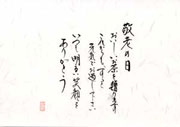 敬老の日
おいしいお茶を贈ります
これからも、ずっと
元気でお過し下さい
いつも明るい笑顔を
ありがとう